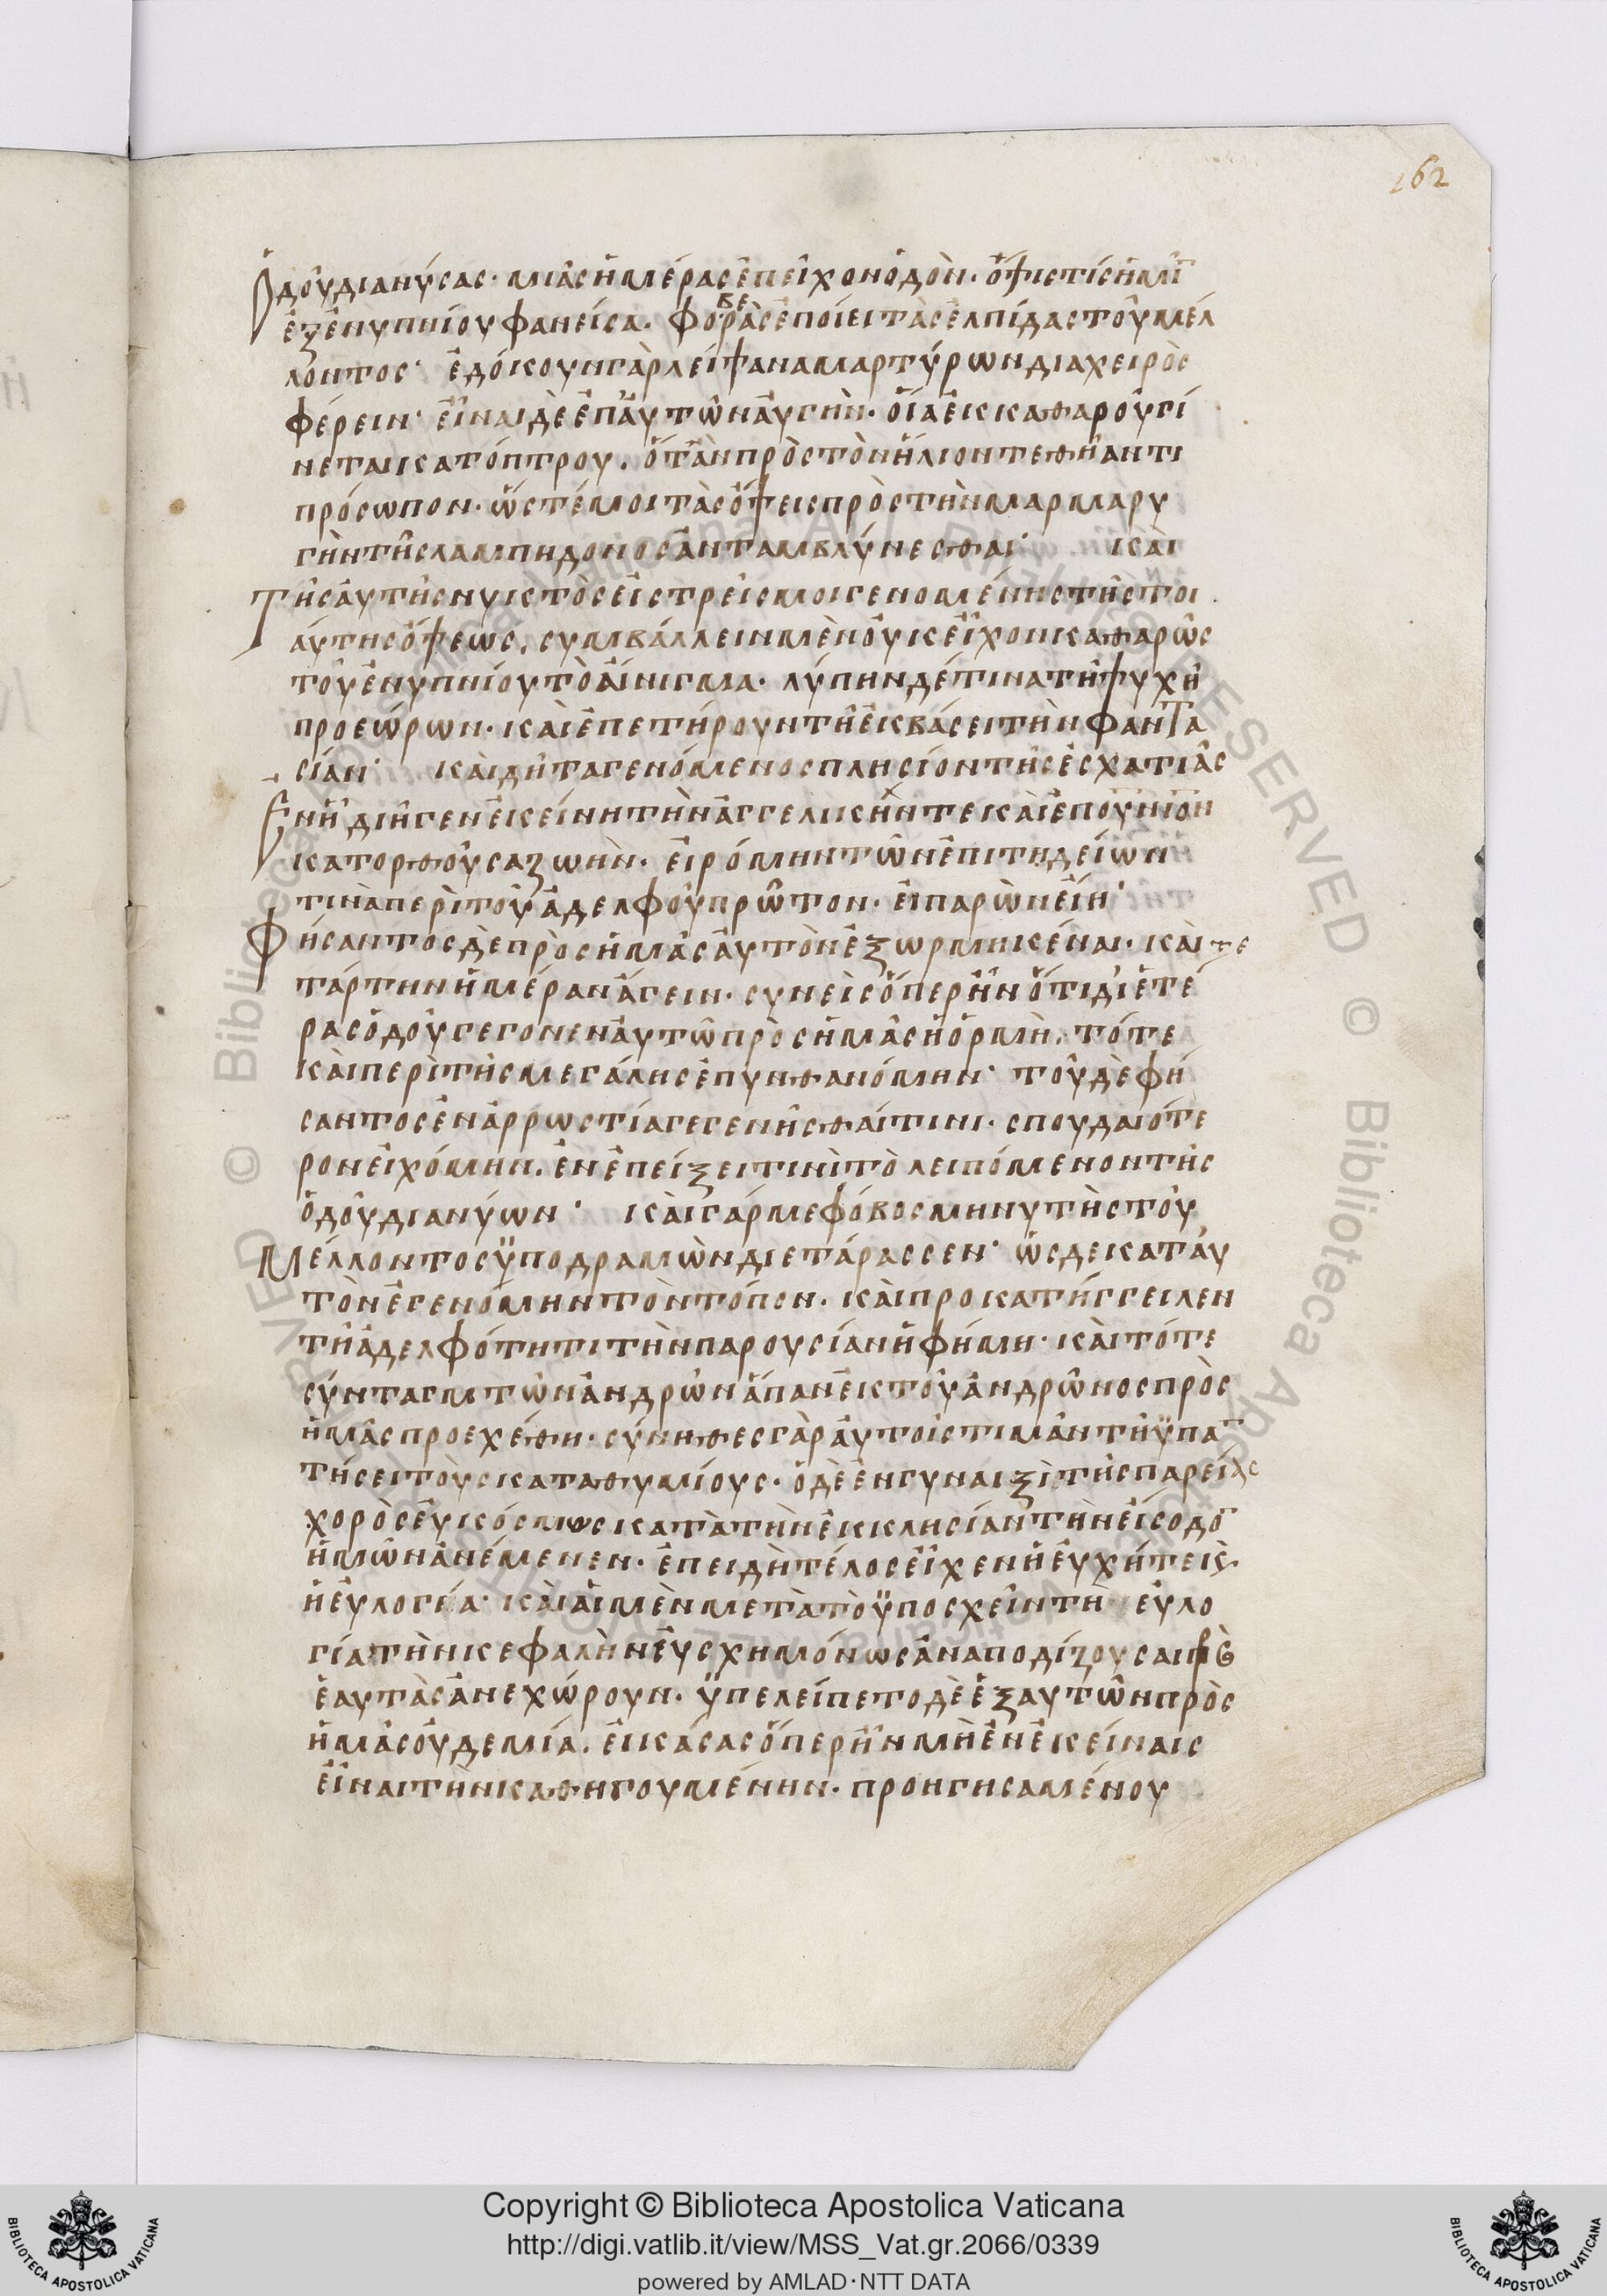 162
ὁδοῦ διανύσας· μιᾶς ἡμέρας ἐπεῖχον ὁδὸν· ὄψις τίς ἡμῖ
ἐξ ἐνυπνίου φανεῖσα. φοβερὰς ἐποίει τὰς ἐλπίδας τοῦ μέλ
λοντος· ἐδόκουν γὰρ λείψανα μαρτύρων διαχειρὸς
φέρειν· εἶναι δὲ ἐπ' αὐτῶν αὐγὴν. οἵα ἐκ καθαροῦ γί
νεται κατόπτρου. ὅτ' ἂν πρὸς τὸν ἥλιον τεθῆ ἀντι
πρόσωπον. ὥστέ μοι τὰς ὄψεις πρὸς τὴν μαρμαρυ
γὴν τῆς λαμπηδονος ἀνταμβλύνεσθαι· καὶ
Τῆς αὐτῆς νυκτὸς εἰς τρεῖς μοι γενομένης τῆς τοι
αύτης ὄψεως, συμβάλλειν μὲν οὐκ εἶχον καθαρῶς
τοῦ ἐνυπνίου τὸ αἴνιγμα. λύπην δέ τινα τῆ ψυχῆ
προεώρων. καὶ ἐπετήρουν τῆ ἐκβάσει τὴν φαντα
σίαν· καὶ δῆτα γενόμενος πλησίον τῆς ἐσχατιᾶς
Ἐν ἧ διῆγεν ἐκείνη τὴν ἀγγελικήν τε καὶ ἐπουνιον
κατορθοῦσα ζωὴν. εἰρόμην τῶν ἐπιτηδείων
τινὰ περὶ τοῦ ἀδελφοῦ πρῶτον. εἰ παρὼν εἴη·
Φήσαντος δὲ πρὸς ἡμᾶς αὐτὸν ἐξωρμηκέναι. καὶ τε
τάρτην ἡμέραν ἄγειν. συνεὶς ὅπερ ἦν ὅτι δι' ἑτέ
ρας ὁδοῦ γέγονεν αὐτῶ πρὸς ἡμᾶς ἡ ὁρμὴ. τότε
καὶ περὶ τῆς μεγάλης ἐπυνθανόμην· τοῦ δὲ φή
σαντος ἐν ἀρρωστία γεγενῆσθαί τινι. σπουδαιότε
ρον εἰχόμην. ἐν ἐπείξει τινὶ τὸ λειπόμενον τῆς
ὁδοῦ διανύων· καὶ γάρ με φόβος μηνυτὴς τοῦ
Μέλλοντος ὑποδραμὼν διετάρασσεν· ὡς δὲ κατ' αὐ
τὸν ἐγενόμην τὸν τόπον. καὶ προκατήγγειλεν
τῆ ἀδελφότητι τὴν παρουσίαν ἡ φήμη. καὶ τότε
σύνταγμ τῶν ἀνδρῶν ἅπαν ἐκ τοῦ ἀνδρῶνος πρὸς
ἡμᾶς προεχέθη. σύνηθες γὰρ αὐτοῖς τιμᾶν τῆ ὑπα
τήσει τοὺς καταθυμίους. ὁ δὲ ἐν γυναιξὶ τῆς παρείας
χορὸς εὐκόσμως κατὰ τὴν ἐκκλησίαν τὴν εἴσοδο
ἡμῶν ἀνέμενεν. ἐπειδὴ τέλος εἶχεν ἡ εὐχή τε κ
ἡ εὐλογία· καὶ αἱ μὲν μετὰ τὸ ὑποσχεῖν τῆ εὐλο
γία τὴν κεφαλὴν εὐσχημόνως ἀναποδίζουσαι πρὸ
ἑαυτὰς ἀνεχώρουν. ὑπελείπετο δὲ ἐξ αὐτῶν πρὸς
ἡμᾶς οὐδεμία. εἰκάσας ὅπερ ἦν μὴ ἐν ἐκείναις
εἶναι τὴν καθηγουμένην. προηγησαμένου
Copyright © Biblioteca Apostolica Vaticana
http://digi.vatlib.it/view/MSS_Vat.gr.2066/0339
powered by AMLAD·NTT DATA